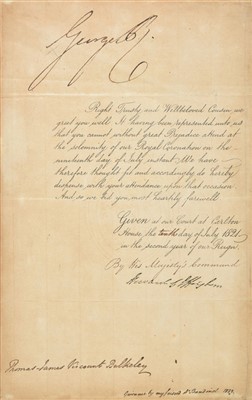 George R.
Right Trusty and Wellbeloved Cousin we
greet you well. It having been represented unto us
that you cannot without Great Prejudice attend at
the solemnity of our Royal Coronation on the
nineteenth day of July instant. We have
therefore thought fit and accordingly do hereby
dispense with your attendance upon that occasion
And so we bid you most heartily farewell
Given at our Court at Carlton
House, the tenth day of July 1821.
in the second year of our Reign
By His Majesty's Command
Thomas James Viscount Bulkeley
by my friend